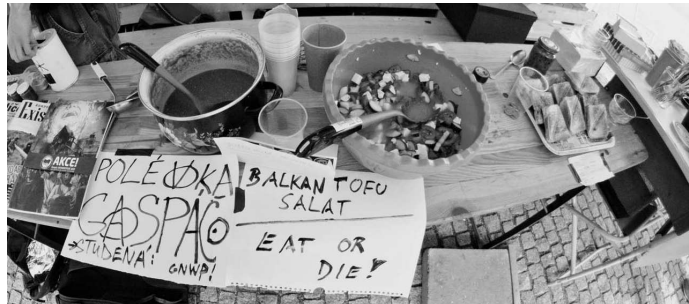 Exis
AKCE!
POLÉVKA
GASPAČO
→STUDENÁ!
GNWP!
BALKAN TOFU
SALAT
EAT OR
DIE!